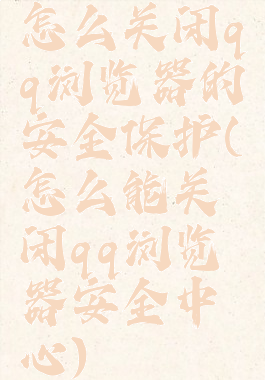 怎么关闭q
q浏览器的
安全保护(
怎么能关
闭qq浏览
器安全中
心)